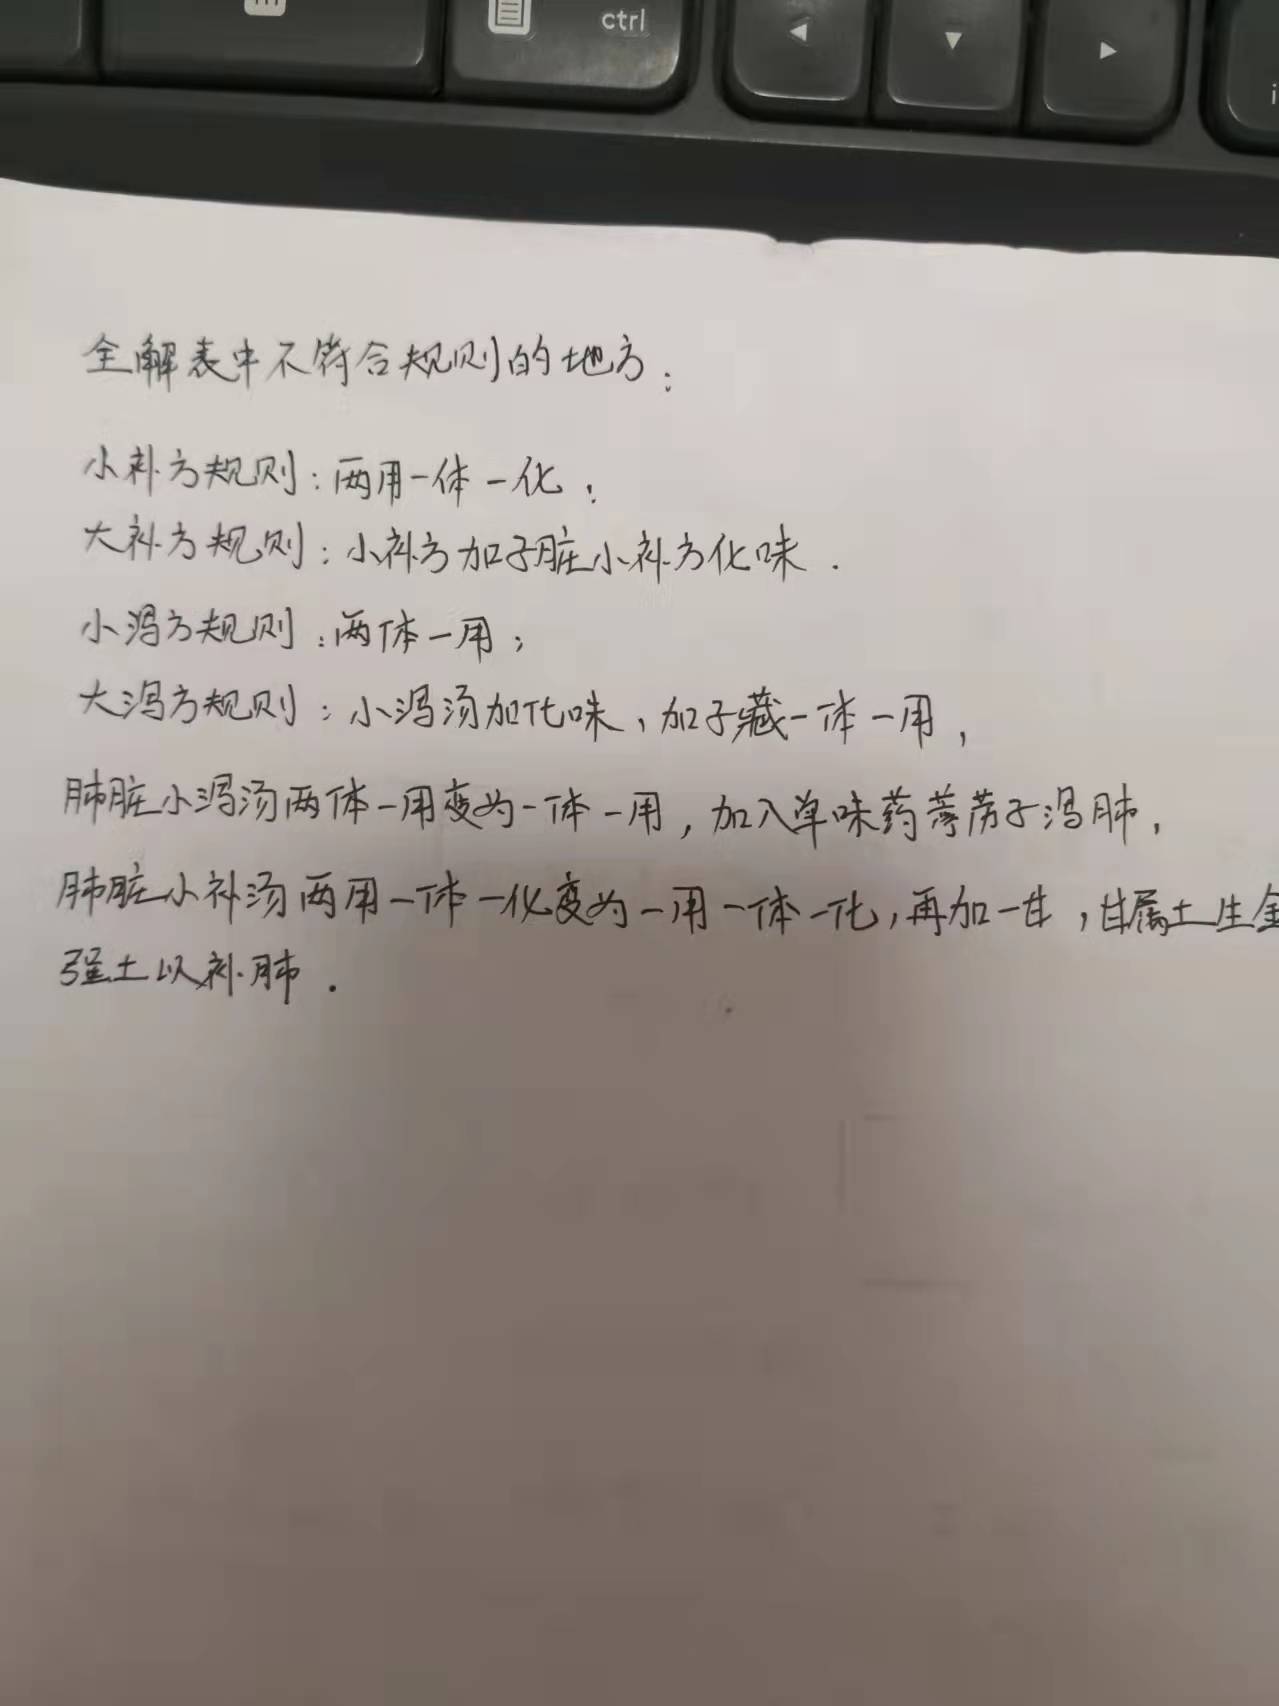 ctrl
全解表中不符合规则的地方：
小补方规则：两用一体一化；
大补方规则：小补方加子脏小补方化味.
小泻方规则：两体一用；
大泻方规则：小泻汤加化味，加子藏一体一用，
肺脏小泻汤两体一用变为一体一用，加入单味药葶苈子泻肺，
肺脏小补汤两用一体一化变为一用一体一化，再加一甘，甘属土生金
强土以补肺.